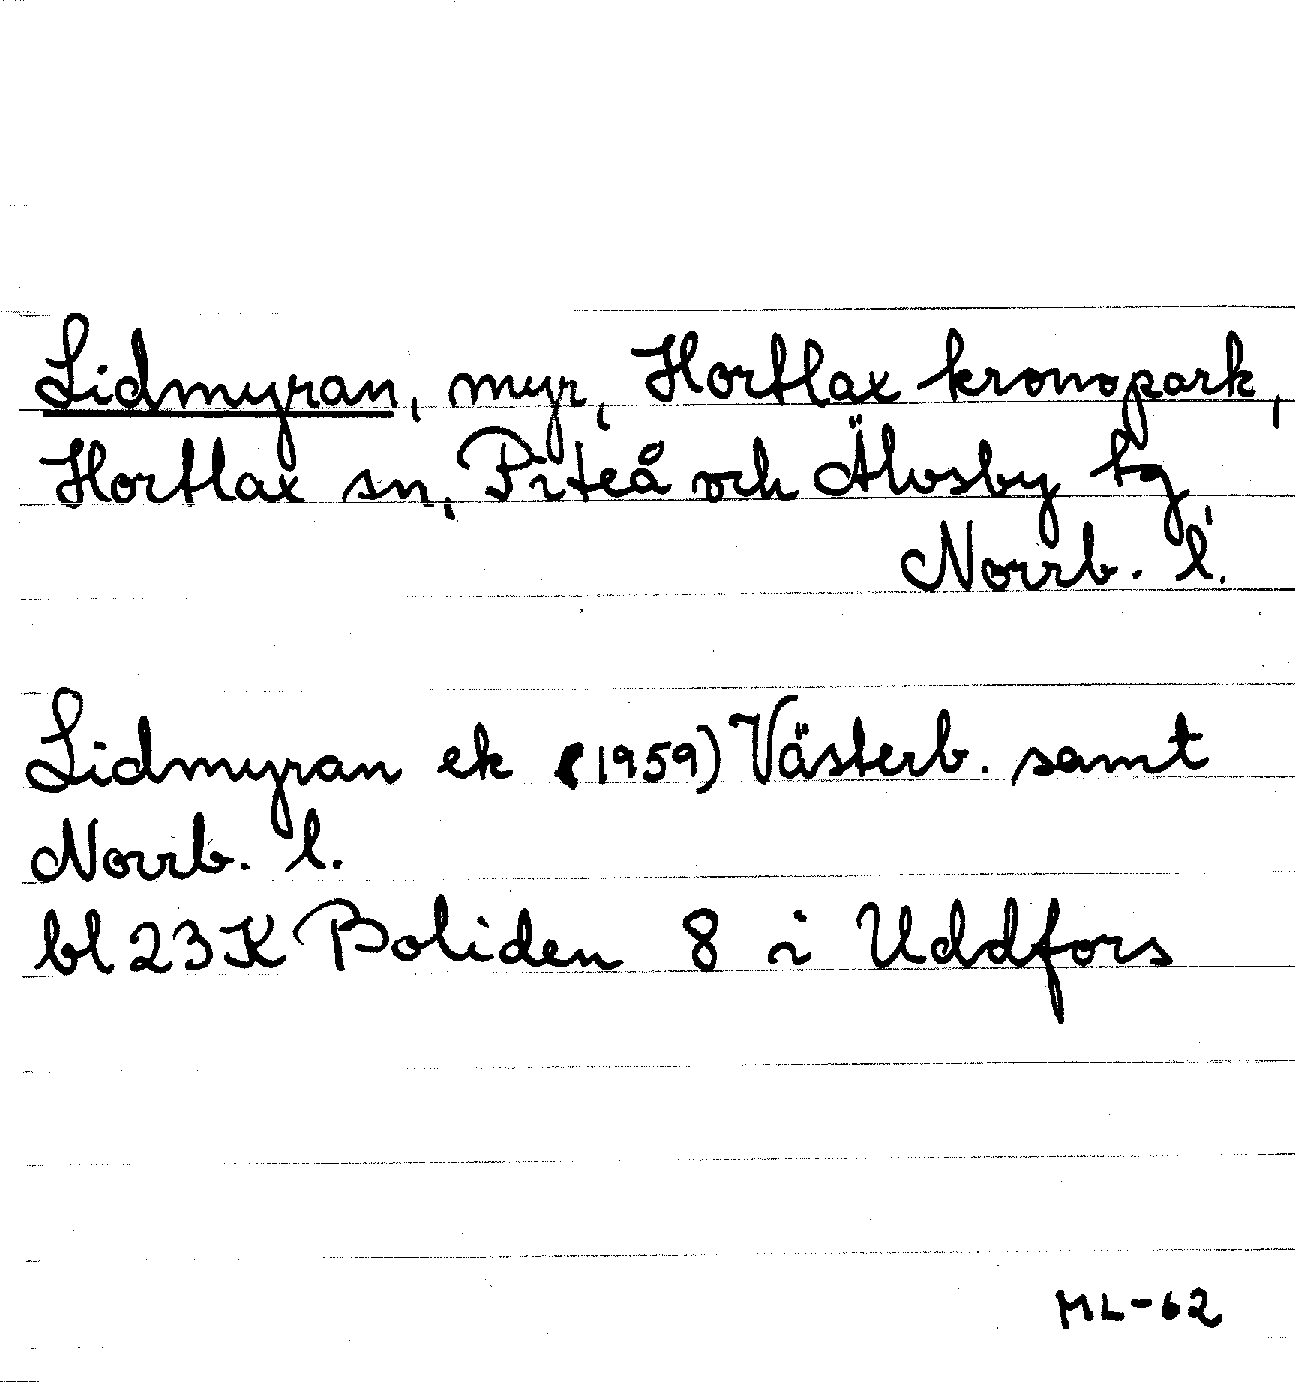 Lidmyran, myr, Hortlax kronopark,
Hortlax sn, Piteå och Älvsby tg,
Norrb. l.
Lidmyran ek (1959) Västerb. samt
Norrb. l.
bl 23K Boliden 8 i Uddfors
ML-62